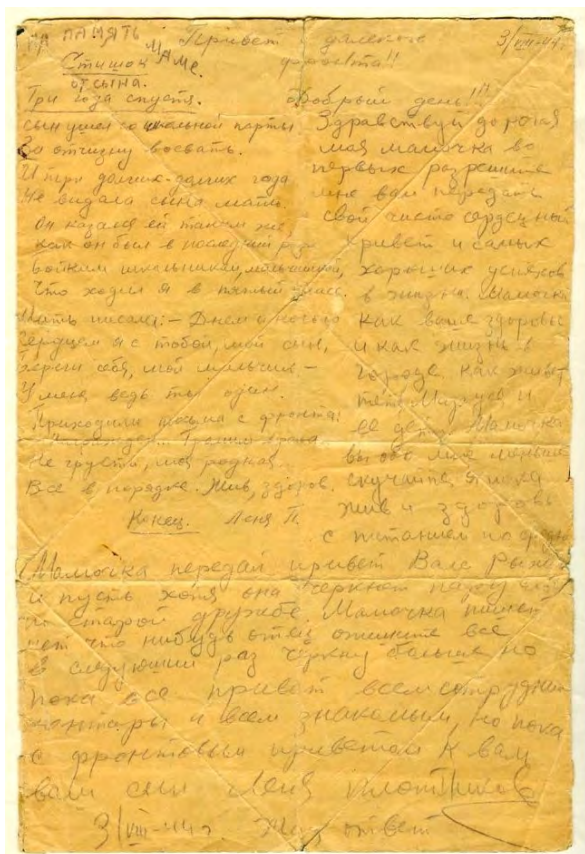 НА ПАМЯТЬ МАМЕ.
Стишок
от сына.
Три года спустя.
Сын ушел со школьной парты
За отчизну воевать.
И три долгих-долгих года
Не видала сына мать.
Он казался ей таким же
как он был в последний раз
бойким школьником, мальчишкой,
Что ходил я в пятый класс.
Мать писала: – Днем и ночью
Сердцем я с тобой, мой сын,
Береги себя, мой мальчик –
У меня ведь ты один.
Приходили письма с фронта:
Громим врага
Не грусти, моя родная..
Все в порядке. Жив, здоров.
Конец. Леня П.
Привет с далекого 3/VIII-44г.
фронта!!
Добрый день!!!
Здравствуй дорогая
моя мамочка во
первых разрешите
мне вам передать
свой чисто сердечный
привет и самых
хороших успехов
в жизни. Мамочка
как ваше здоровье
и как жизнь в
городе. Как живет
тетя и
ее дети. Мамочка
вы обо мне меньше
скучайте, я пока
жив и здоров
с питанием
Мамочка передай привет Вале
и пусть хотя она черкнет пару слов
по старой дружбе. Мамочка пишет
нет что нибудь отец опишите все
в следующий раз черкну больше но
пока все привет всем сотрудникам
конторы и всем знакомым, но пока
с фронтовым приветом к вам
ваш сын Леня Плотников
3/VIII-44г. Жду ответ